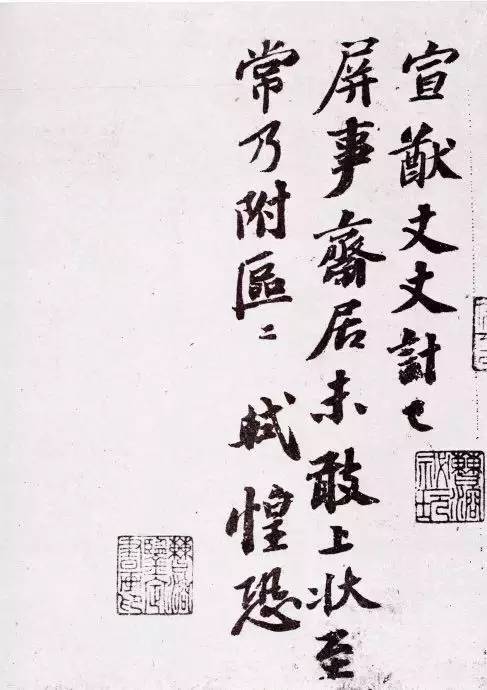 宣猷丈丈計已
屏事齋居未敢上狀至
常乃附區〻 軾惶恐